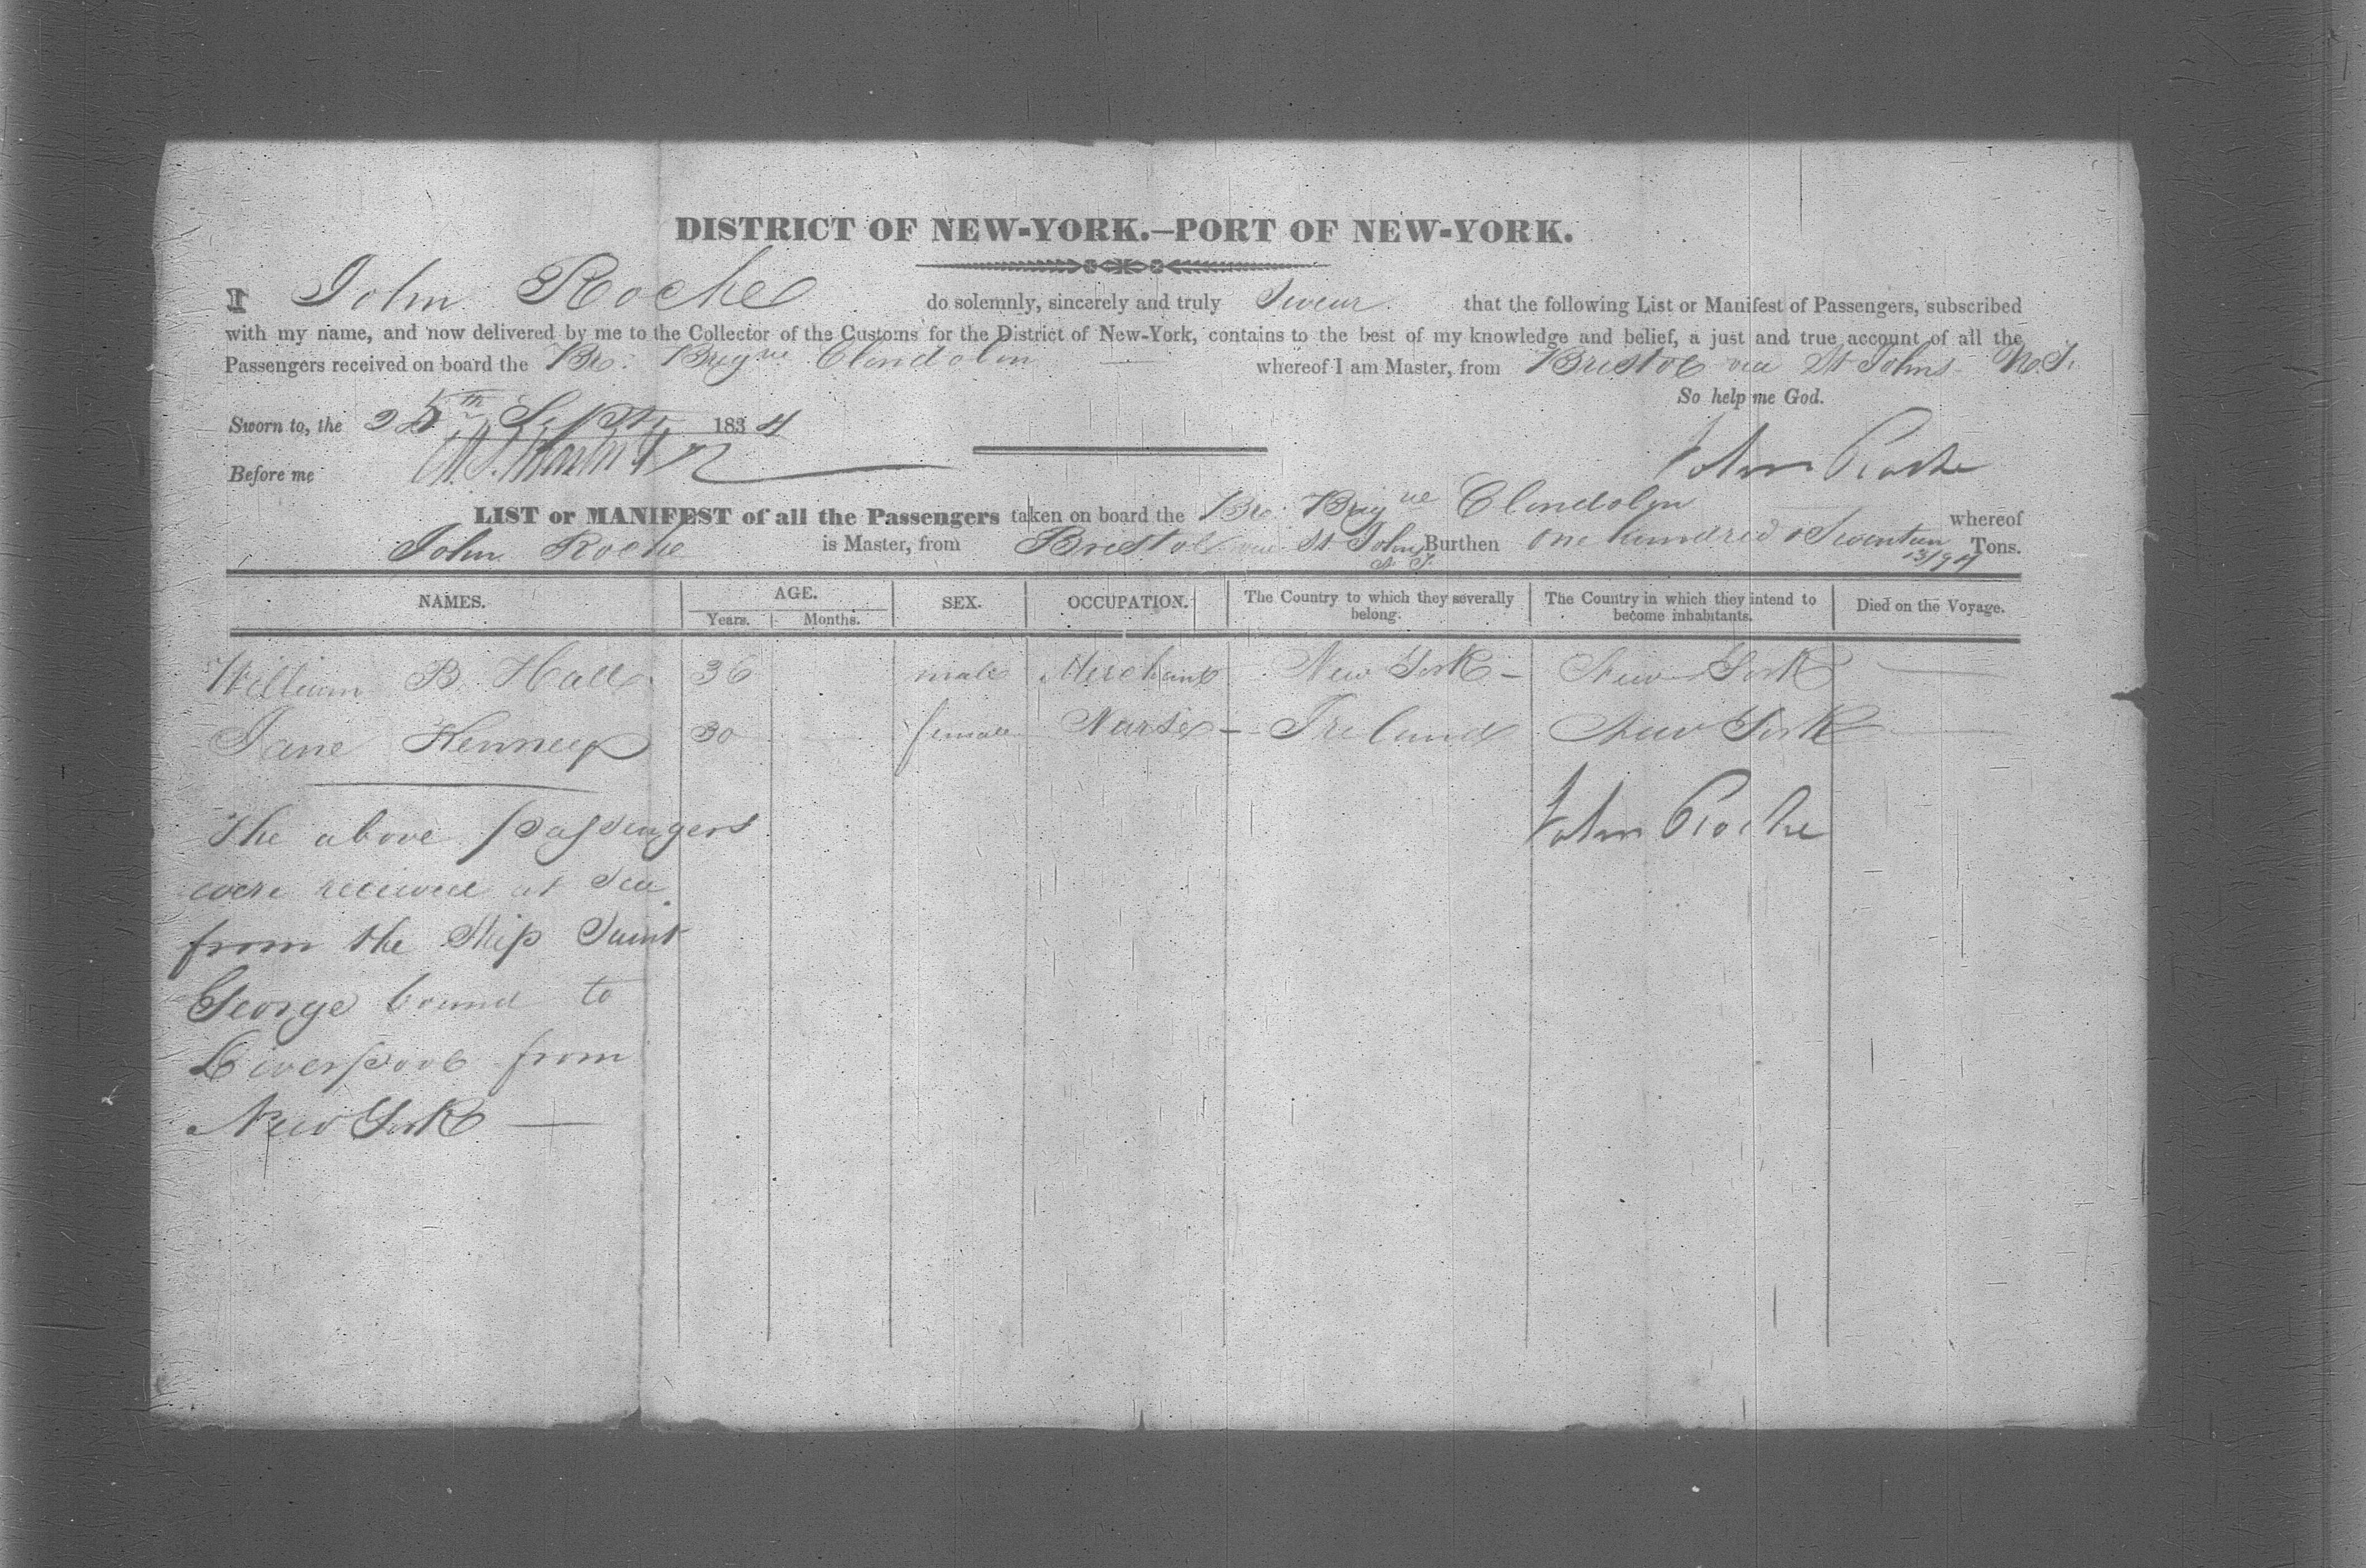 DISTRICT OF NEW-YORK.—PORT OF NEW-YORK.
I John Roche do solemnly, sincerely and truly Swear that the following List or Manifest of Passengers, subscribed
with my name, and now delivered by me to the Collector of the Customs for the District of New-York, contains to the best of my knowledge and belief, a just and true account of all the
Passengers received on board the Br. Brigue Clondolin whereof I am Master, from Bristol via St Johns N.F.
So help me God.
Sworn to, the 25th Sept 1834
John Roche
Before me
LIST or MANIFEST of all the Passengers taken on board the Br. Brigue Clondolin whereof
John Roche is Master, from Bristol via St Johns N F. Burthen One hundred & Seventeen 13/94 Tons.
NAMES. AGE. SEX. OCCUPATION. The Country to which they severally belong. The Country in which they intend to become inhabitants. Died on the Voyage.
Years. Months.
William B. Hall 36 male Merchant New York – New York —
Jane Kenney 30 — female Nurse – Ireland New York —
John Roche
The above passengers
were received at Sea
from the Ship Saint
George bound to
Liverpool from
New York —